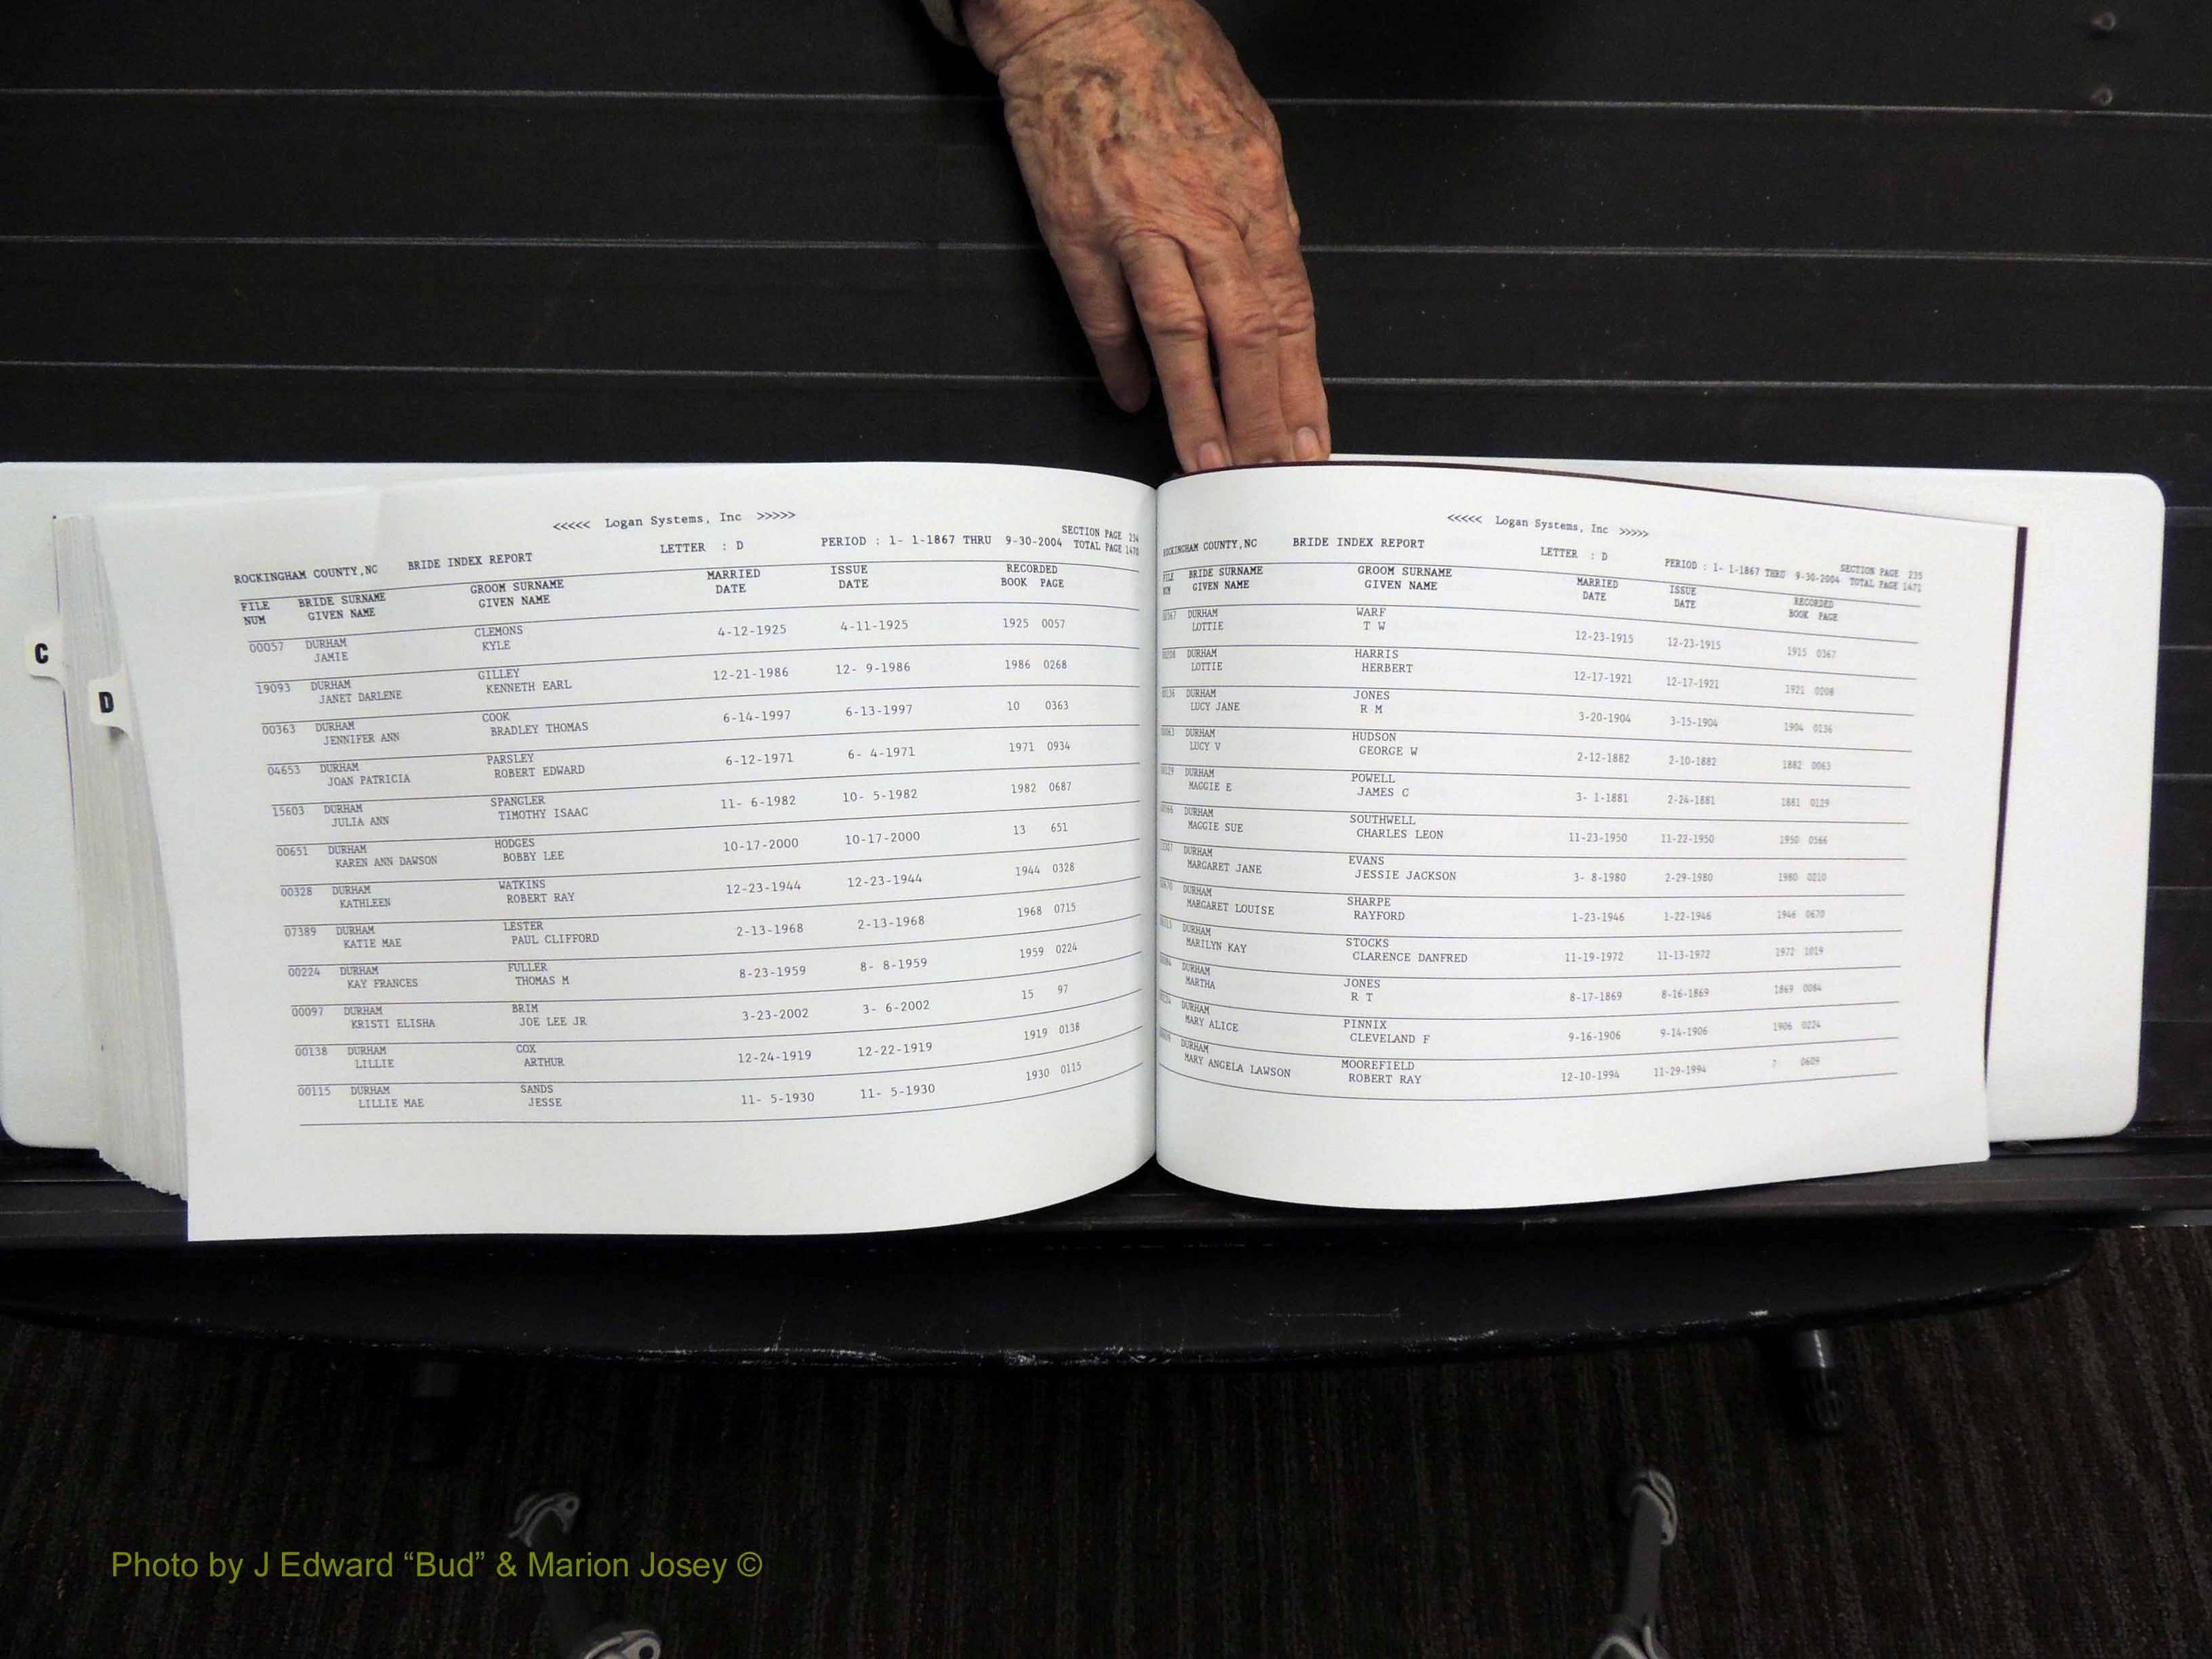 <<<<< Logan Systems, Inc >>>>>
SECTION PAGE 234
ROCKINGHAM COUNTY,NC BRIDE INDEX REPORT LETTER : D PERIOD : 1- 1-1867 THRU 9-30-2004 TOTAL PAGE 1470
FILE BRIDE SURNAME GROOM SURNAME MARRIED ISSUE RECORDED
NUM GIVEN NAME GIVEN NAME DATE DATE BOOK PAGE
00057 DURHAM CLEMONS 4-12-1925 4-11-1925 1925 0057
JAMIE KYLE
19093 DURHAM GILLEY 12-21-1986 12- 9-1986 1986 0268
JANET DARLENE KENNETH EARL
00363 DURHAM COOK 6-14-1997 6-13-1997 10 0363
JENNIFER ANN BRADLEY THOMAS
04653 DURHAM PARSLEY 6-12-1971 6- 4-1971 1971 0934
JOAN PATRICIA ROBERT EDWARD
15603 DURHAM SPANGLER 11- 6-1982 10- 5-1982 1982 0687
JULIA ANN TIMOTHY ISAAC
00651 DURHAM HODGES 10-17-2000 10-17-2000 13 651
KAREN ANN DAWSON BOBBY LEE
00328 DURHAM WATKINS 12-23-1944 12-23-1944 1944 0328
KATHLEEN ROBERT RAY
07389 DURHAM LESTER 2-13-1968 2-13-1968 1968 0715
KATIE MAE PAUL CLIFFORD
00224 DURHAM FULLER 8-23-1959 8- 8-1959 1959 0224
KAY FRANCES THOMAS M
00097 DURHAM BRIM 3-23-2002 3- 6-2002 15 97
KRISTI ELISHA JOE LEE JR
00138 DURHAM COX 12-24-1919 12-22-1919 1919 0138
LILLIE ARTHUR
00115 DURHAM SANDS 11- 5-1930 11- 5-1930 1930 0115
LILLIE MAE JESSE
C
D
<<<<< Logan Systems, Inc >>>>>
SECTION PAGE 235
ROCKINGHAM COUNTY,NC BRIDE INDEX REPORT LETTER : D PERIOD : 1- 1-1867 THRU 9-30-2004 TOTAL PAGE 1471
FILE BRIDE SURNAME GROOM SURNAME MARRIED ISSUE RECORDED
NUM GIVEN NAME GIVEN NAME DATE DATE BOOK PAGE
DURHAM WARF 12-23-1915 12-23-1915 1915 0367
LOTTIE T W
DURHAM HARRIS 12-17-1921 12-17-1921 1921 0208
LOTTIE HERBERT
DURHAM JONES 3-20-1904 3-15-1904 1904 0136
LUCY JANE R M
DURHAM HUDSON 2-12-1882 2-10-1882 1882 0063
LUCY V GEORGE W
DURHAM POWELL 3- 1-1881 2-24-1881 1881 0129
MAGGIE E JAMES C
DURHAM SOUTHWELL 11-23-1950 11-22-1950 1950 0566
MAGGIE SUE CHARLES LEON
DURHAM EVANS 3- 8-1980 2-29-1980 1980 0210
MARGARET JANE JESSIE JACKSON
DURHAM SHARPE 1-23-1946 1-22-1946 1946 0670
MARGARET LOUISE RAYFORD
DURHAM STOCKS 11-19-1972 11-13-1972 1972 1019
MARILYN KAY CLARENCE DANFRED
DURHAM JONES 8-17-1869 8-16-1869 1869 0084
MARTHA R T
DURHAM PINNIX 9-16-1906 9-14-1906 1906 0224
MARY ALICE CLEVELAND F
DURHAM MOOREFIELD 12-10-1994 11-29-1994 7 0609
MARY ANGELA LAWSON ROBERT RAY
Photo by J Edward “Bud” & Marion Josey ©